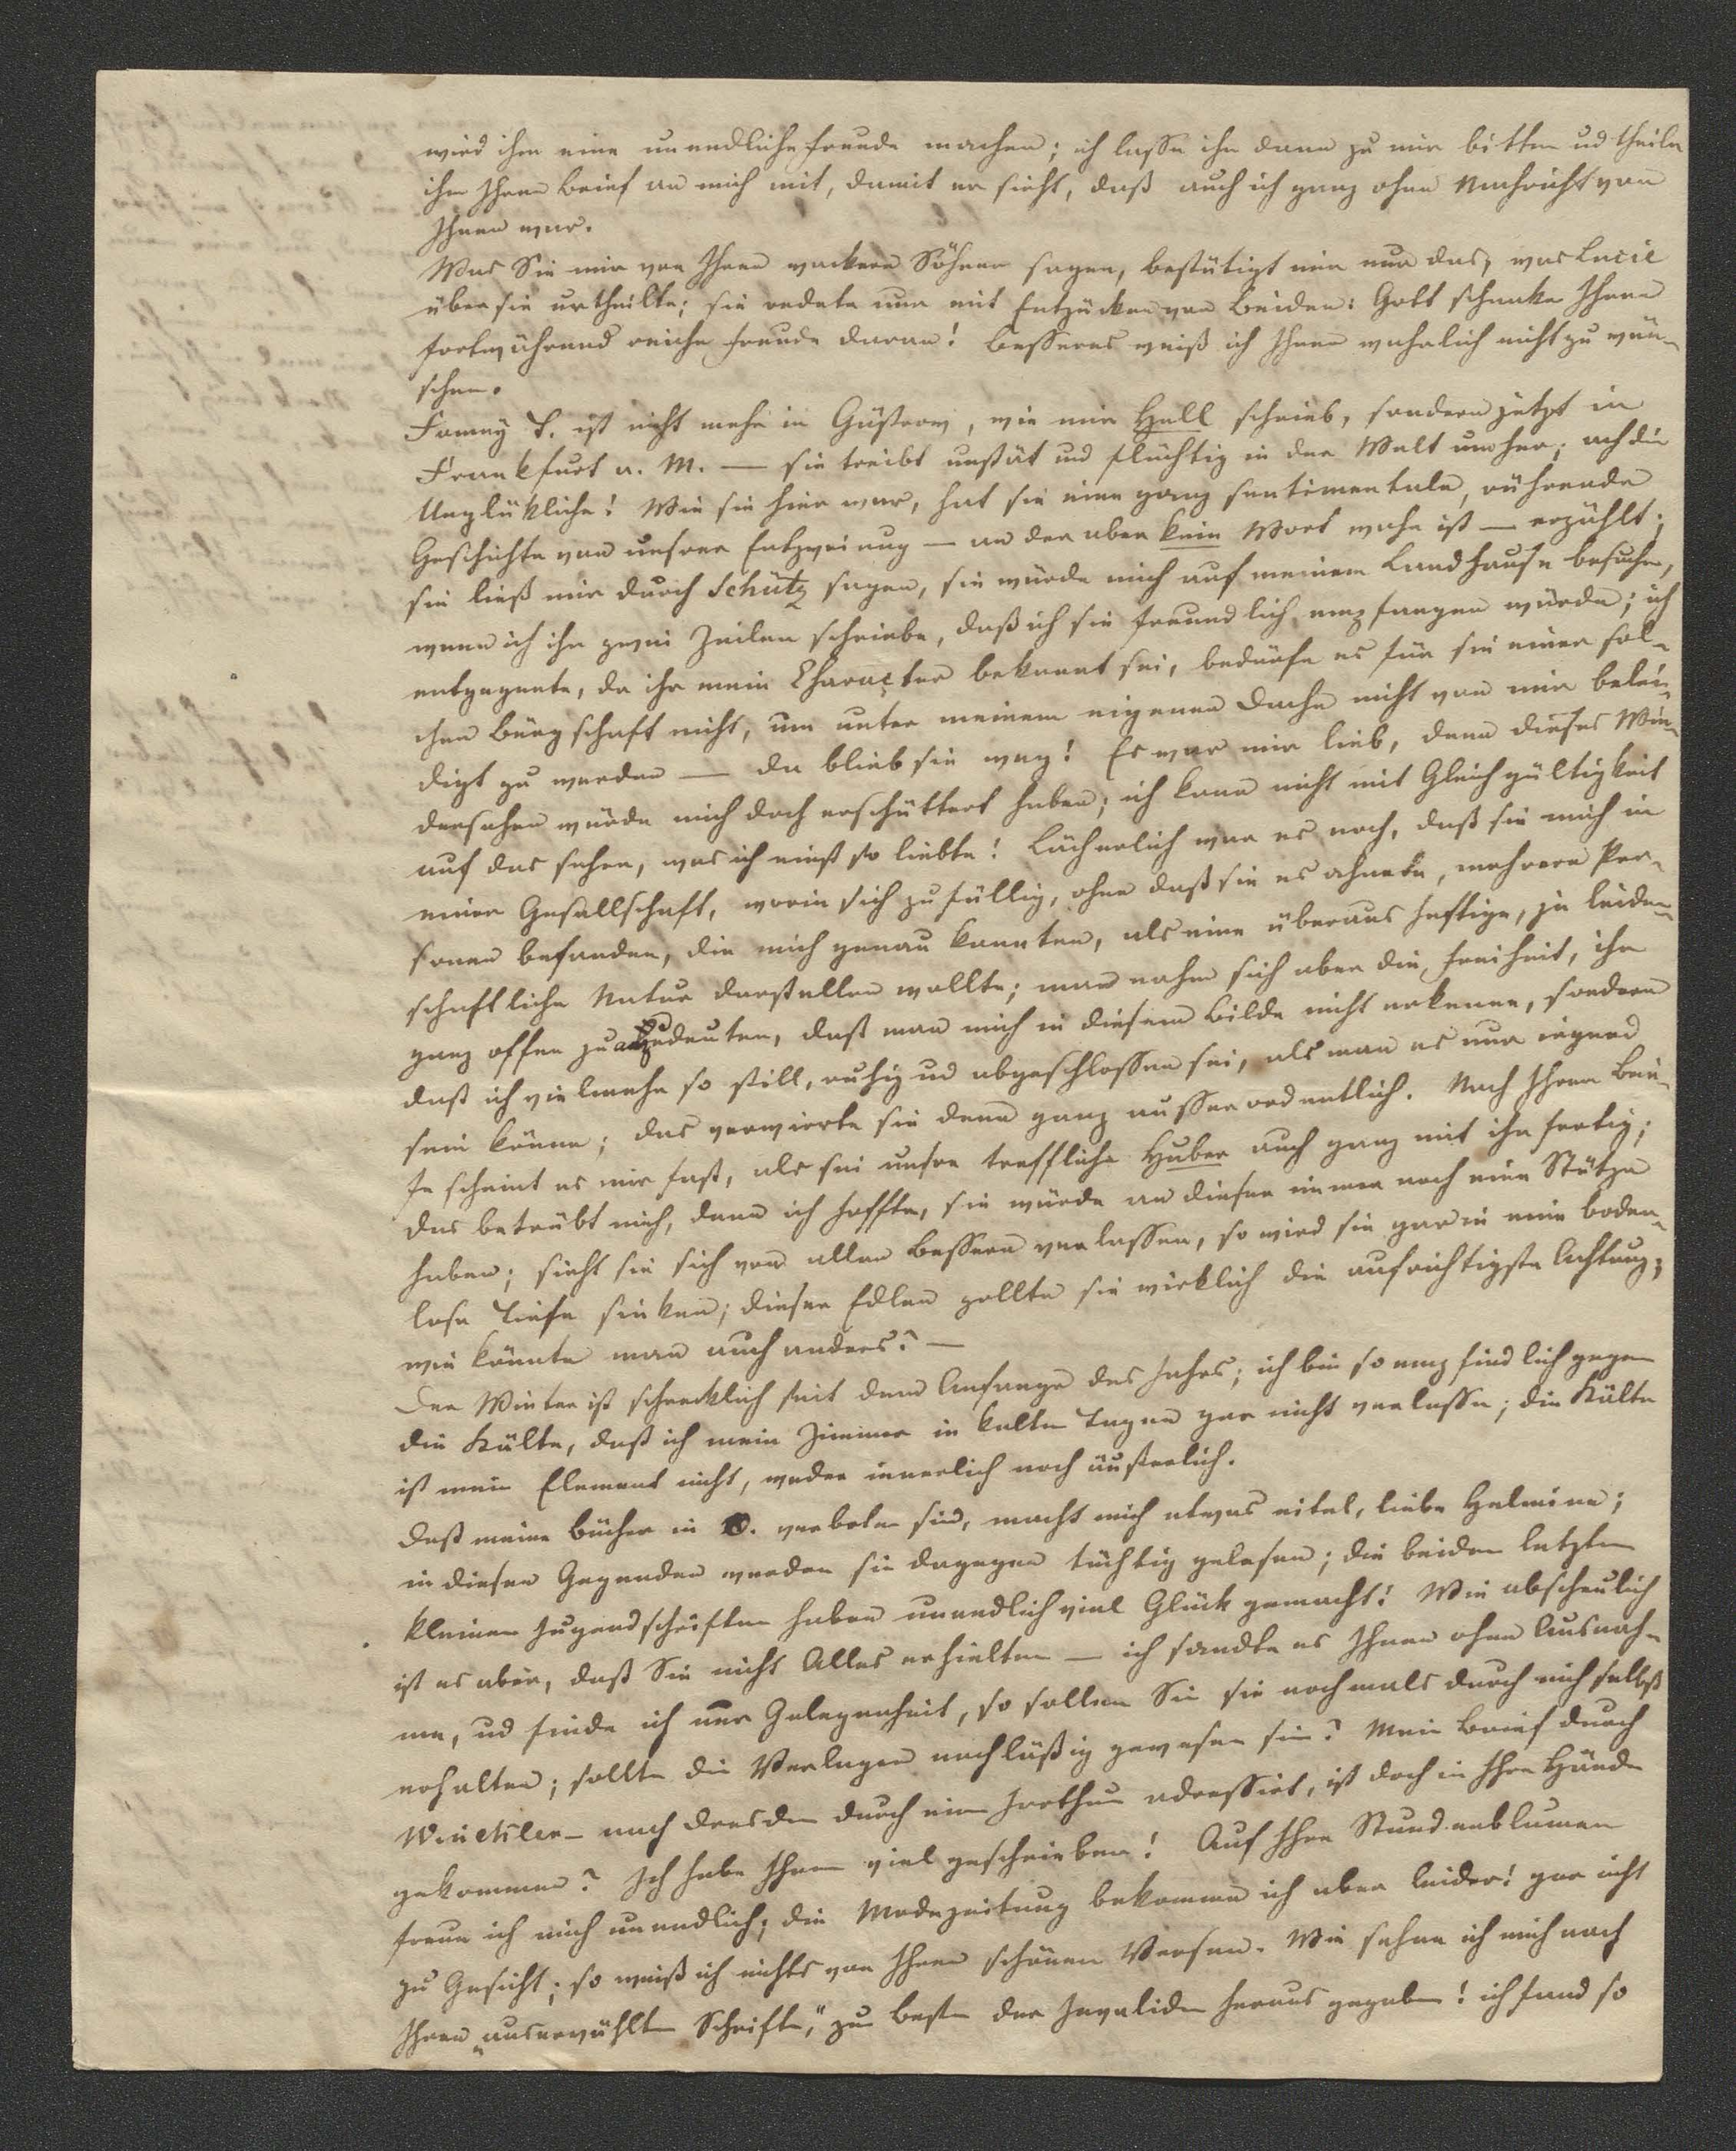 wird ihm eine unendliche Freude machen; ich lasse ihn dann zu mir bitten ud theile
ihm Ihren Brief an mich mit, damit er sieht, daß auch ich ganz ohne Nachricht von
Ihnen war.
Was Sie mir von Ihren wackern Söhnen sagen, bestätigt mir nur das, was Lucie
über sie urtheilte; sie redete nur mit Entzücken von Beiden: Gott schenke Ihnen
fortwährend reiche Freude daran! Besseres weiß ich Ihnen wahrlich nicht zu wün-
schen.
Fanny T. ist nicht mehr in Güstrow, wie mir Hell schrieb, sondern jetzt in
Frankfurt a. M. — sie treibt unstät und flüchtig in der Welt umher; ach die
Unglükliche! Wie sie hier war, hat sie eine ganz sentimentale, rührende
Geschichte von unsrer Entzweiung — an der aber kein Wort wahr ist — erzählt;
sie ließ mir durch Schütz sagen, sie würde mich auf meinem Landhause besuchen,
wenn ich ihr zwei Zeilen schriebe, daß ich sie freundlich empfangen würde; ich
entgegnete, da ihr mein Character bekannt sei, bedürfe es für sie einer sol-
chen Bürgschaft nicht, um unter meinem eigenen Dache nicht von mir belei-
digt zu werden — da blieb sie weg! Es war mir lieb, denn dieses Wie-
dersehen würde mich doch erschüttert haben; ich kann nicht mit Gleichgültigkeit
auf das sehen, was ich einst so liebte! Lächerlich war es noch, daß sie mich in
einer Gesellschaft, worin sich zufällig, ohne daß sie es ahnete, mehrere Per-
sonen befanden, die mich genau kannten, als eine überaus heftige, ja leiden-
schaftliche Natur darstellen wollte; man nahm sich aber die Freiheit, ihr
ganz offen zu anzudeuten, daß man mich in diesem Bilde nicht erkenne, sondern
daß ich vielmehr so still, ruhig ud abgeschlossen sei, als man es nur irgend
sein könne; das verwirrte sie denn ganz ausserordentlich. Nach Ihrem Brie-
fe scheint es mir fast, als sei unsre treffliche Huber auch ganz mit ihr fertig;
das betrübt mich, denn ich hoffte, sie würde an dieser immer noch eine Stütze
haben; sieht sie sich von allen Bessern verlassen, so wird sie gar in eine boden-
lose Tiefe sinken; dieser Edlen zollte sie wirklich die aufrichtigste Achtung;
wie könnte man auch anders? —
Der Winter ist schrecklich seit dem Anfange des Jahrs; ich bin so empfindlich gegen
die Kälte, daß ich mein Zimmer in kalten Tagen gar nicht verlasse; die Kälte
ist mein Element nicht, weder innerlich noch äußerlich.
Daß meine Bücher in verboten sind, macht mich etwas eitel, liebe Helmina;
in diesen Gegenden werden sie dagegen tüchtig gelesen; die beiden letzten
kleinen Jugendschriften haben unendlich viel Glück gemacht! Wie abscheulich
ist es aber, daß Sie nicht Alles erhielten — ich sandte es Ihnen ohne Ausnah-
me, ud finde ich nur Gelegenheit, so sollen Sie sie nochmals durch mich selbst
erhalten; sollte die Verleger nachläßig gewesen sein? Mein Brief durch
Winckler — nach Dresden durch einen Irrthum adressirt, ist doch in Ihre Hände
gekommen? Ich habe Ihnen viel geschrieben! Auf Ihre Stundenblumen
freue ich mich unendlich; die Modezeitung bekomme ich aber leider! gar nicht
zu Gesicht; so weiß ich nichts von Ihren schönen Versen. Wie sehne ich mich nach
Ihren „auserwählten Schriften," zum Besten der Invaliden heraus gegeben! ich fand so